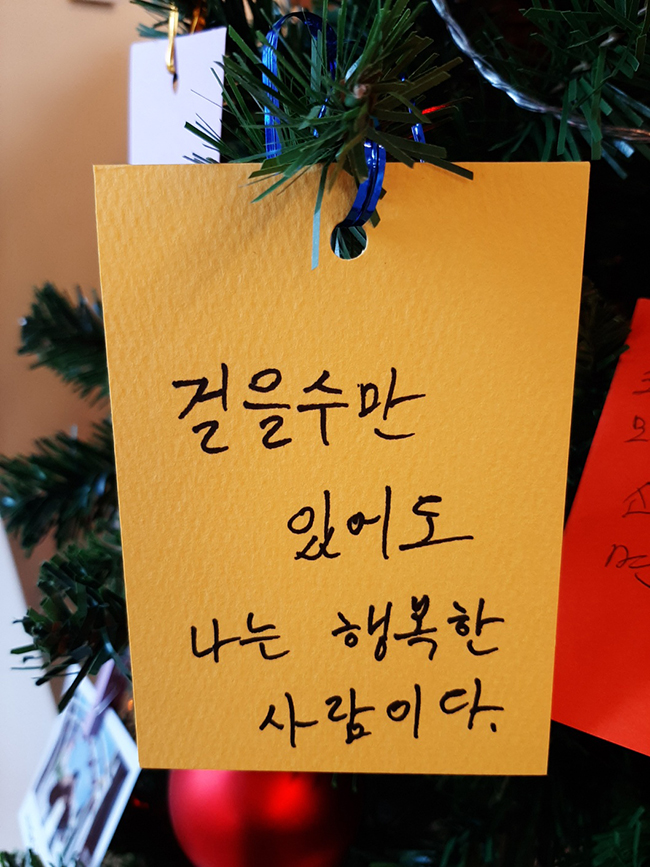 걸을수만
있어도
나는 행복한
사람이다.